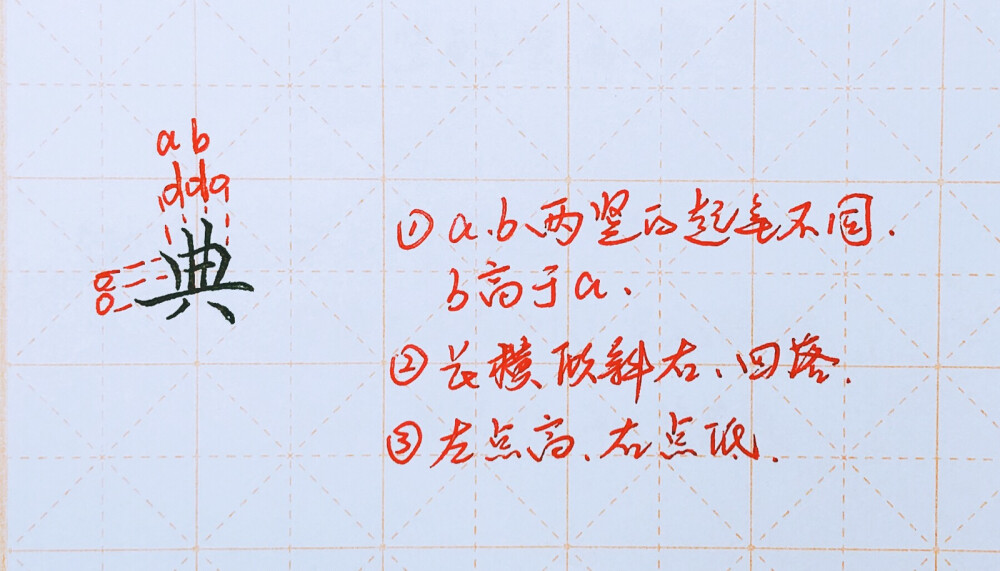 a b
d d a
a
o
典
① a、b、两竖的起笔不同.
b高于a.
② 长横倾斜右、回落.
③ 左点高、右点低.